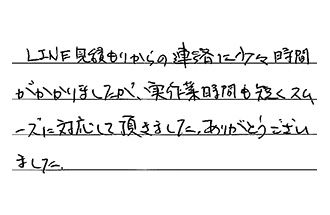 LINE見積もりからの連絡に少々時間
がかかりましたが、実作業時間も短くスム
ーズに対応して頂きました。ありがとうござい
ました。